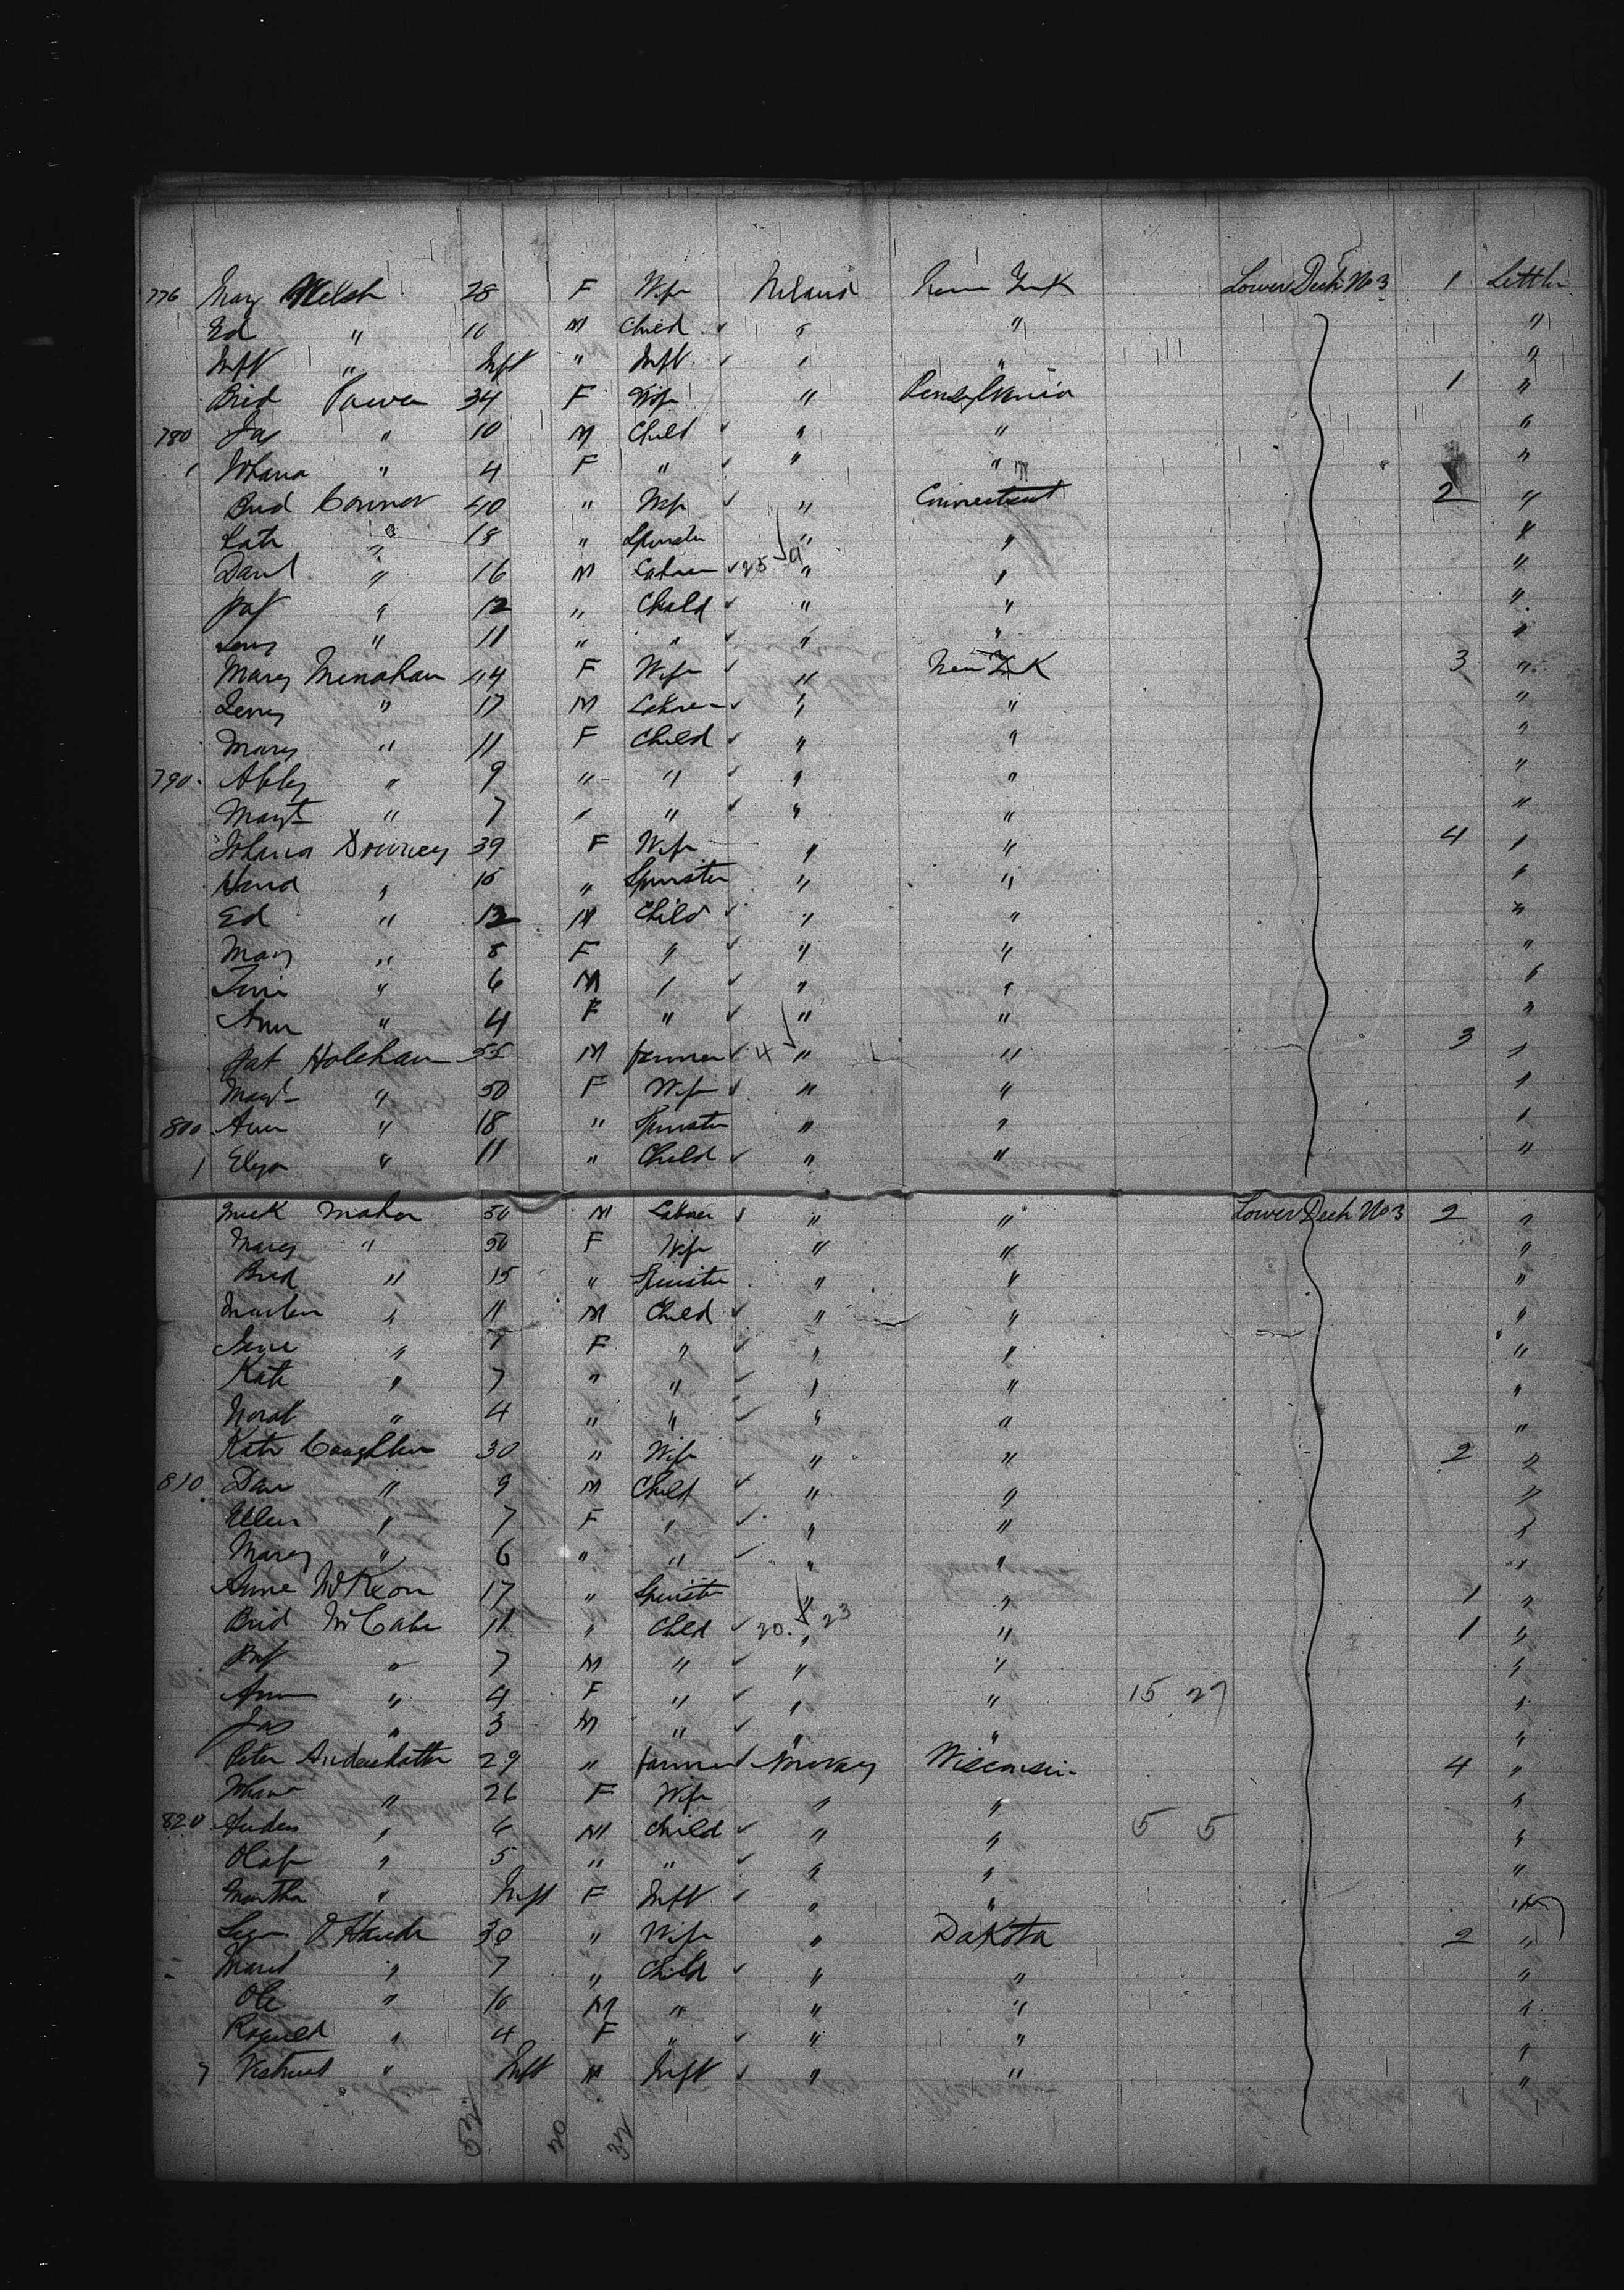 776 Mary Welsh 28 F Wife Ireland New York Lower Deck No 3 1 Settler
Ed " 10 M Child " " "
Inft " Inft " Inft " " "
Brid Power 34 F Wife " Pensylvania 1 "
780 Jas " 10 M Child " " "
1 Johana " 4 F " " " "
Brid Connor 40 " Wife " Connecticut 2 "
Kate " 18 " Spinster " " "
Danl " 16 M Laborer 25 9 " " "
Pat " 12 " Child " " "
" 11 " " " " "
Mary Minahan 44 F Wife " New York 3 "
Jerry " 17 M Laborer " " "
Mary " 11 F Child " " "
790 Abby " 9 " " " " "
Margt " 7 " " " " "
Johana Downey 39 F Wife " " 4 "
" 15 " Spinster " " "
Ed " 12 M Child " " "
Mary " 8 F " " " "
" 6 M " " " "
Ann " 4 F " " " "
Pat Holehan 55 M farmer 4 " " 3 "
Margt " 50 F Wife " " "
800 Ann " 18 " Spinster " " "
1 Eliza " 11 " Child " " "
Mick Maher 50 M Laborer " " Lower Deck No 3 2 "
Mary " 50 F Wife " " "
Brid " 15 " Spinster " " "
Martin " 11 M Child " " "
" F " " " "
Kate " 7 " " " " "
Norah " 4 " " " " "
Kate Coughlin 30 " Wife " " 2 "
810 Dan " 9 M Child " " "
Ellen " 7 F " " " "
Mary " 6 " " " " "
Anne McKeon 17 " Spinster " " 1 "
Brid McCabe 11 " Child 20 23 " " 1 "
Pat " 7 M " " " "
Ann " 4 F " " " 15 27 "
Jas " 3 M " " " "
Peter 29 " farmer Norway Wisconsin 4 "
Johana " 26 F Wife " " "
820 Anders " 6 M Child " " 5 5 "
Olaf " 5 " " " " "
Martha " Inft F Inft " " "
30 " Wife " Dakota 2 "
" 7 " Child " " "
Ole " 10 M " " " "
" 4 F " " " "
7 " Inft M Inft " " "
52 20 32